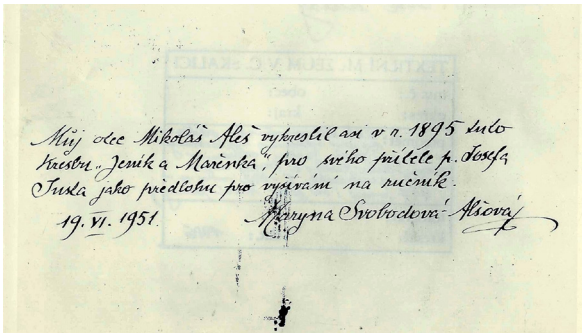 Můj otec Mikoláš Aleš vykreslil asi v r. 1895 tuto
kresbu „Jeník a Mařenka“, pro svého přítele p. Josefa
Šusta jako předlohu pro vyšívání na ručník.
19. VI. 1951. Maryna Svobodová-Alšová